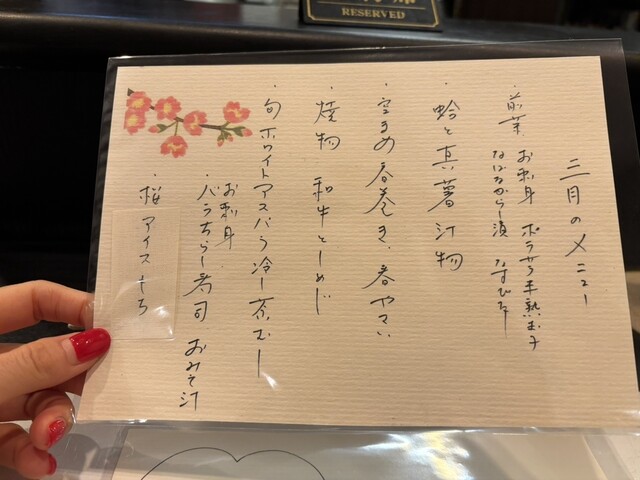 RESERVED
三月のメニュー
・前菜 お刺身 ポテサラ半熟玉子
なばなからし漬 なすひたし
・蛤と真薯汁物
・空まめ春巻き、春やさい
・焼物 和牛としめじ
・旬ホワイトアスパラ冷し茶むし
お刺身
・バラちらし寿司 おみそ汁
・桜アイス もち